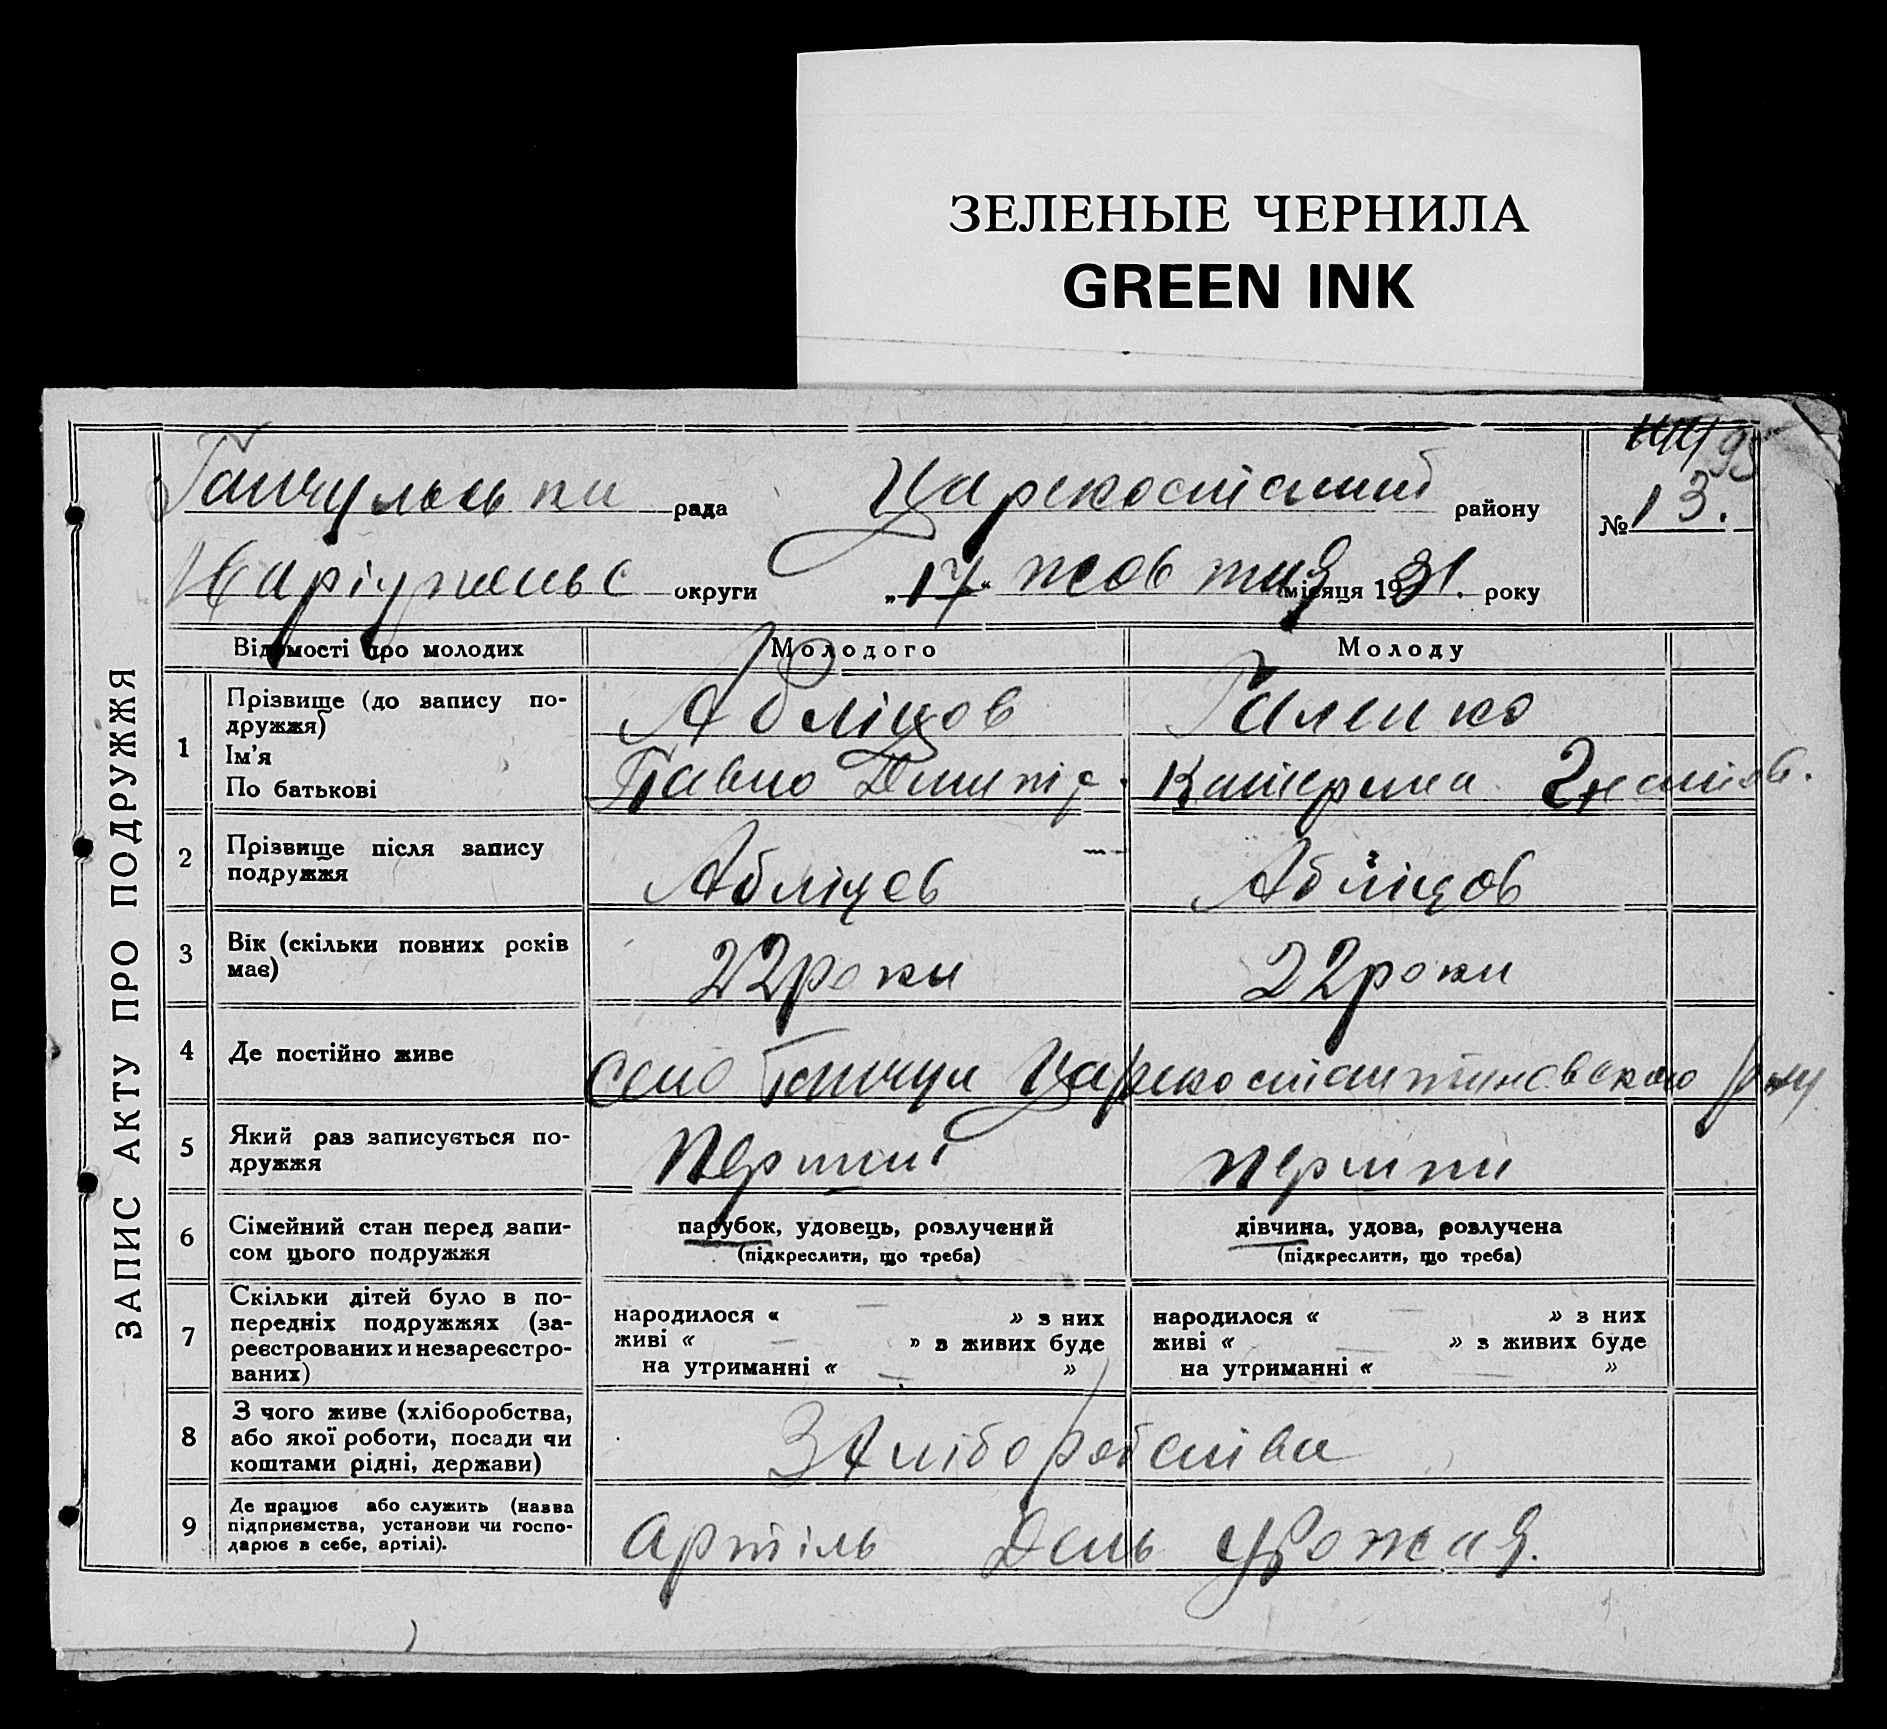 ЗЕЛЕНЫЕ ЧЕРНИЛА
GREEN INK
ЗАПИС АКТУ ПРО ПОДРУЖЖЯ
рада району
№ 13.
округи „17“ жовтня місяця 1931. року
Відомості про молодих Молодого Молоду
1 Прізвище (до запису по-
дружжя) Абліцов Галенко
Ім'я
По батькові Павло Катерина
2 Прізвище після запису
подружжя Абліцов Абліцов
3 Вік (скільки повних років
має) 22 роки 22 роки
4 Де постійно живе село Гайчул Царекостантиновского
5 Який раз записується по-
дружжя
6 Сімейний стан перед запи-
сом цього подружжя
парубок, удовець, розлучений
(підкреслити, що треба)
дівчина, удова, розлучена
(підкреслити, що треба)
7 Скільки дітей було в по-
передніх подружжях (за-
реєстрованих и незареєстро-
ваних)
народилося « — » з них
живі « — » з живих буде
на утриманні « — »
народилося « — » з них
живі « — » з живих буде
на утриманні « — »
8 З чого живе (хліборобства,
або якої роботи, посади чи
коштами рідні, держави)
З хліборобства
9 Де працює або служить (назва
підприємства, установи чи госпо-
дарює в себе, артілі).
артіль День урожая.